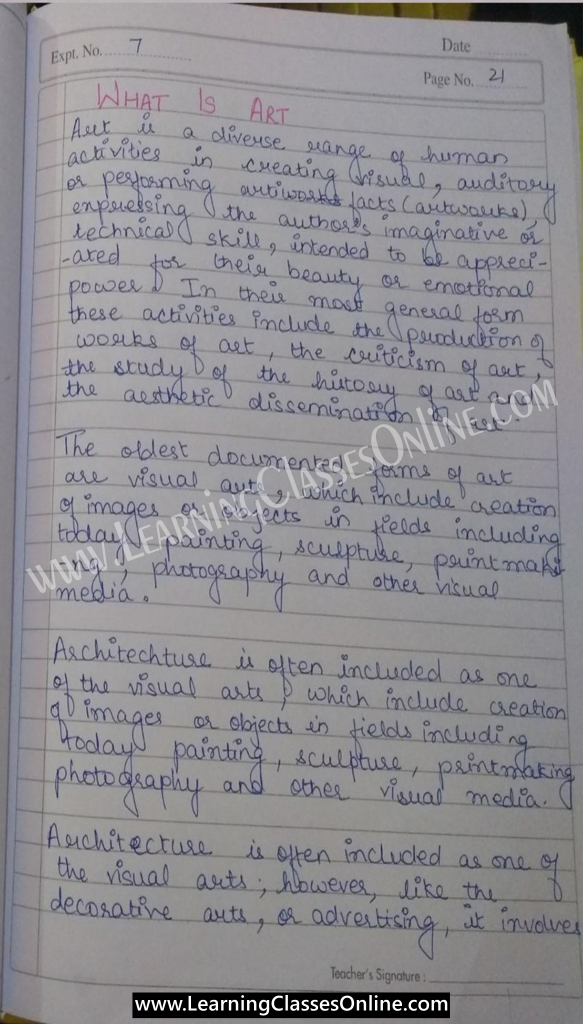 Expt. No. 7
Date
Page No. 21
WHAT IS ART
Art is a diverse range of human
activities in creating visual, auditory
or performing artiworks facts (artworks),
expressing the author's imaginative or
technical skill, intended to be appreci-
-ated for their beauty or emotional
power. In their most general form
these activities include the production of
works of art, the criticism of art,
the study of the history of art and
the aesthetic dissemination of art.
The oldest documented forms of art
are visual arts, which include creation
of images or objects in fields including
today painting, sculpture, printmak
ing, photography and other visual
media.
Architechture is often included as one
of the visual arts, which include creation
of images or objects in fields including
today painting, sculpture, printmaking
photography and other visual media.
Architecture is often included as one of
the visual arts; however, like the
decorative arts, or advertising, it involves
Teacher's Signature :
www.LearningClassesOnline.com
www.LearningClassesOnline.com